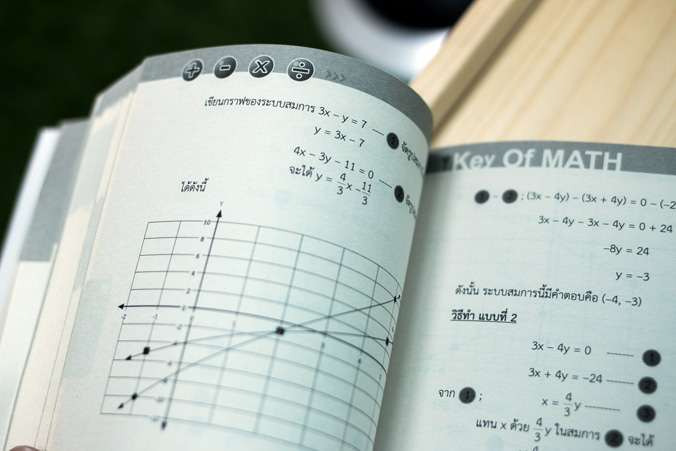 + − × ÷ >>>
เขียนกราฟของระบบสมการ 3x − y = 7 — 1
y = 3x − 7
4x − 3y − 11 = 0 — 2
จะได้ y = 4/3 x − 11/3
ได้ดังนี้
Y
10
8
6
4
2
Key Of MATH
1 − 2 ; (3x − 4y) − (3x + 4y) = 0 − (−2
3x − 4y − 3x − 4y = 0 + 24
−8y = 24
y = −3
ดังนั้น ระบบสมการนี้มีคำตอบคือ (−4, −3)
วิธีทำ แบบที่ 2
3x − 4y = 0 -------- 1
3x + 4y = −24 -------- 2
จาก 1 ; x = 4/3 y -------- 3
แทน x ด้วย 4/3 y ในสมการ 2 จะได้